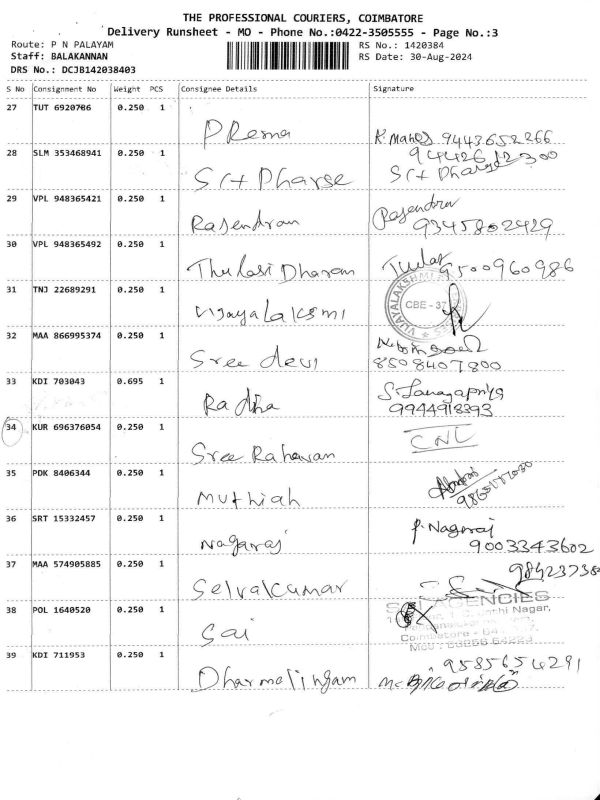 THE PROFESSIONAL COURIERS, COIMBATORE
Delivery Runsheet - MO - Phone No.:0422-3505555 - Page No.:3
Route: P N PALAYAM RS No.: 1420384
Staff: BALAKANNAN RS Date: 30-Aug-2024
DRS No.: DCJB142038403
S No Consignment No Weight PCS Consignee Details Signature
27 TUT 6920706 0.250 1
Prema K. Mahes 9443652266
28 SLM 353468941 0.250 1 94426 12300
S/t Pharse S/t
29 VPL 948365421 0.250 1 Rajendra
Rajendran 9345802429
30 VPL 948365492 0.250 1
Thulasi Dharan 9500960986
31 TNJ 22689291 0.250 1
Vijaya Laksmi CBE - 37
32 MAA 866995374 0.250 1
Sree devi 8508407800
33 KDI 703043 0.695 1
Radha 9944918393
34 KUR 696376054 0.250 1 CNL
Sree Rahavan
35 PDK 8406344 0.250 1
Muthiah
36 SRT 15332457 0.250 1 P. Nagaraj
Nagaraj 9003343602
37 MAA 574905885 0.250 1
Selvakumar
38 POL 1640520 0.250 1 AGENCIES
Sai Nagar,
Coimbatore
39 KDI 711953 0.250 1 9585654291
Dharmalingam